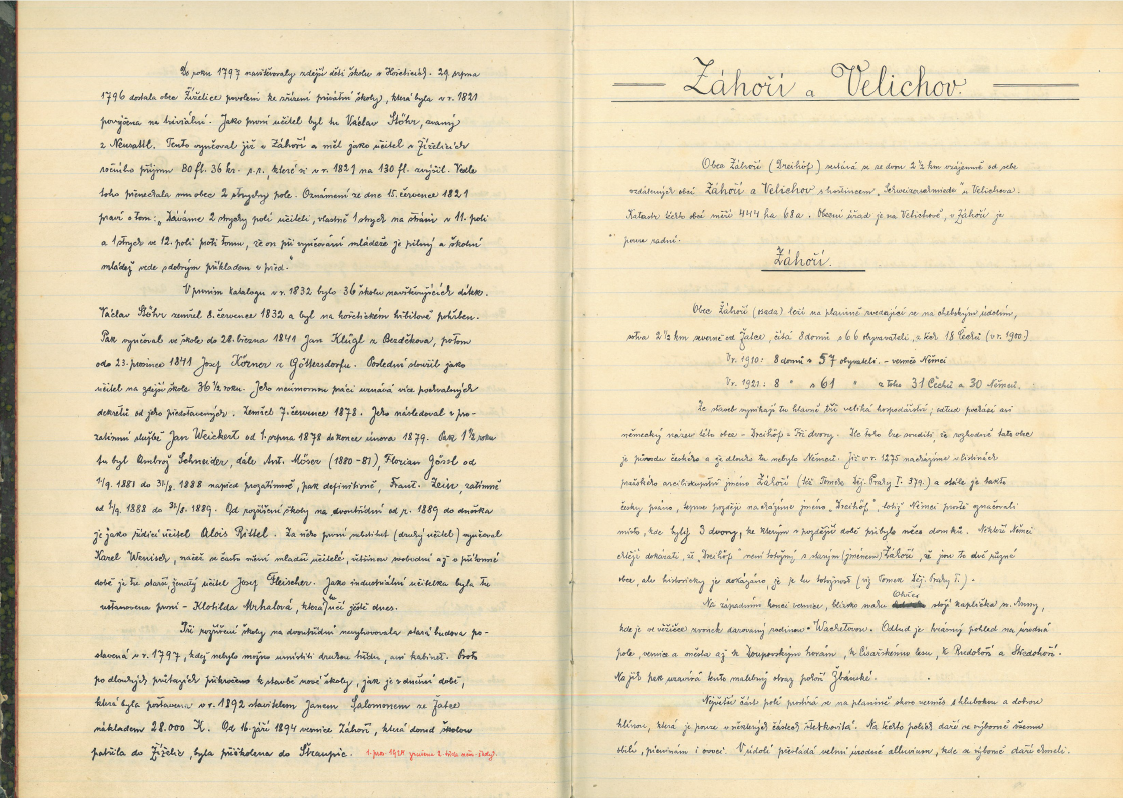 Do roku 1797 navštěvovaly zdejší děti školu v Hořeticích. 29. srpna
1796 dostala obec Žiželice povolení ke zřízení privátní školy, která byla v r. 1821
povýšena na triviální. Jako první učitel byl tu Václav Stöhr, zvaný
z Neusattl. Tento vyučoval již v Záhoří a měl jako učitel v Žiželicích
ročního příjmu 80 fl. 36 kr. , které si v r. 1821 na 130 fl. zvýšil. Vedle
toho přenechala mu obec 2 strychy pole. Oznámení ze dne 15. července 1821
praví o tom: „Dáváme 2 strychy polí učiteli, vlastně 1 strych na stráni v 11. poli
a 1 strych ve 12. poli proti tomu, že on při vyučování mládeže je pilný a školní
mládež vede s dobrým příkladem v před.“
V prvním katalogu v r. 1832 bylo 36 školu navštěvujících dítek.
Václav Stöhr zemřel 8. července 1832 a byl na hořetickém hřbitově pohřben.
Pak vyučoval ve škole do 28. března 1841 Jan Klügl z Bezděkova, potom
odo 23. prosince 1841 Josef Körner z Göttersdorfu. Poslední sloužil jako
učitel na zdejší škole 36 ½ roku. Jeho neúmornou práci uznává více pochvalných
dekretů od jeho představených. Zemřel 7. července 1878. Jeho následoval v pro-
zatímní službě Jan Weickert od 1. srpna 1878 do konce února 1879. Pak 1 ½ roku
tu byl Ambrož Schneider, dále Ant. Möser (1880-81), Florian Gössl od
1/9. 1881 do 31/8. 1888 napřed prozatímně, pak definitivně, Frant. Zeis, zatímně
od 1/9. 1888 do 31/8. 1889. Od rozšíření školy na dvoutřídní od r. 1889 do dneška
je jako řídící učitel Alois Rittel. Za něho první substitut (druhý učitel) vyučoval
Karel Wenisch, načež se často mění mladší učitelé, většinou svobodní až v přítomné
době je tu starší, ženatý učitel Josef Fleischer. Jako industriální učitelka byla tu
ustanovena první - Klotilda Mrhalová, která tu učí ještě dnes.
Při rozšíření školy na dvoutřídní nevyhovovala stará budova po-
stavená v r. 1797, když nebylo možno umístiti druhou třídu, ani kabinet. Proto
po dlouhých průtazích přikročeno k stavbě nové školy, jak je v dnešní době,
která byla postavena v r. 1892 stavitelem Janem Salomonem ze Žatce
nákladem 28.000 K. Od 16. září 1894 vesnice Záhoří, která dosud školou
patřila do Žiželic, byla přiškolena do Straupic. 1. pros. 1924 zrušena 2. třída něm. školy.
Záhoří a Velichov.
Obec Záhoří (Dreihöf) skládá se ze dvou 2 ½ km vzájemně od sebe
vzdálených obcí Záhoří a Velichov s hostincem „Schweizerschmiede“ u Velichova.
Katastr těchto obcí měří 444 ha 68 a. Obecní úřad je na Velichově, v Záhoří je
pouze radní.
Záhoří.
Obec Záhoří (osada) leží na planině svažující se na oherským údolím,
sotva 2 ½ km severně od Žatce, čítá 8 domů s 66 obyvateli, z toho 18 Čechů (v r. 1910.)
V r. 1910: 8 domů s 57 obyvateli. - vesměs Němci
V r. 1921: 8 " s 61 " z toho 31 Čechů a 30 Němců.
Ze staveb vynikají tu hlavně tři veliká hospodářství; odtud pochází asi
německý název této obce - Dreihöf = Tři dvory. Dle toho lze souditi, že rozhodně tato obec
je původu českého a že dlouho tu nebylo Němců. Již v r. 1275 nacházíme v listinách
pražského arcibiskupství jméno Záhoří (též Tomek: Děj. Prahy I. 379.) a stále je takto
česky psáno, teprve později nacházíme jméno „Dreihöf“, totiž Němci prostě označovali
místo, kde byly 3 dvory, ke kterým v pozdější době přibylo něco domků. Někteří Němci
chtějí dokázati, že „Dreihöf“ není totožný s starým (jménem) Záhoří, že jsou to dvě různé
obce, ale historicky je dokázáno, že je tu totožnost (viz Tomek Děj. Prahy I.).
Na západním konci vesnice, blízko svahu Ohře stojí kaplička sv. Anny,
kde je ve věžičce zvonek darovaný rodinou Wachtlovou. Odtud je krásný pohled na úrodná
pole, vesnice a města až k Doupovským horám, k Císařskému lesu, k Rudohoří a Středohoří.
Na jih pak uzavírá tento malebný obraz pohoří Žbánské.
Největší část polí prostírá se na planině skoro vesměs s hlubokou a dobrou
hlínou, která je pouze v některých částech štěrkovitá. Na těchto polích daří se výborně všemu
obilí, pícninám i ovoci. V údolí převládá velmi úrodné alluvium, kde se výborně daří chmeli.